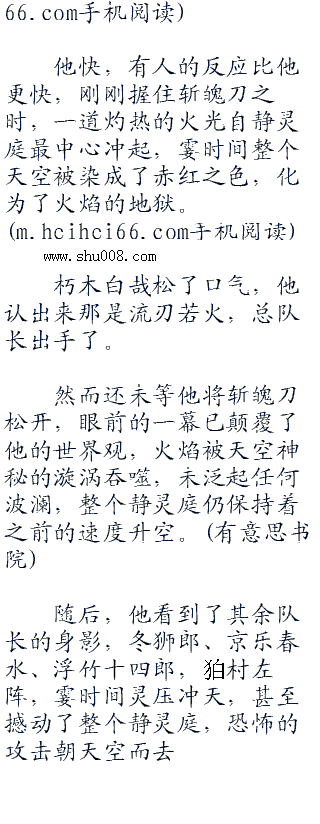 66.com手机阅读)
他快，有人的反应比他
更快，刚刚握住斩魄刀之
时，一道灼热的火光自静灵
庭最中心冲起，霎时间整个
天空被染成了赤红之色，化
为了火焰的地狱。
(m.hcihci66.com手机阅读)
www.shu008.com
朽木白哉松了口气，他
认出来那是流刃若火，总队
长出手了。
然而还未等他将斩魄刀
松开，眼前的一幕已颠覆了
他的世界观，火焰被天空神
秘的漩涡吞噬，未泛起任何
波澜，整个静灵庭仍保持着
之前的速度升空。(有意思书
院)
随后，他看到了其余队
长的身影，冬狮郎、京乐春
水、浮竹十四郎，狛村左
阵，霎时间灵压冲天，甚至
撼动了整个静灵庭，恐怖的
攻击朝天空而去